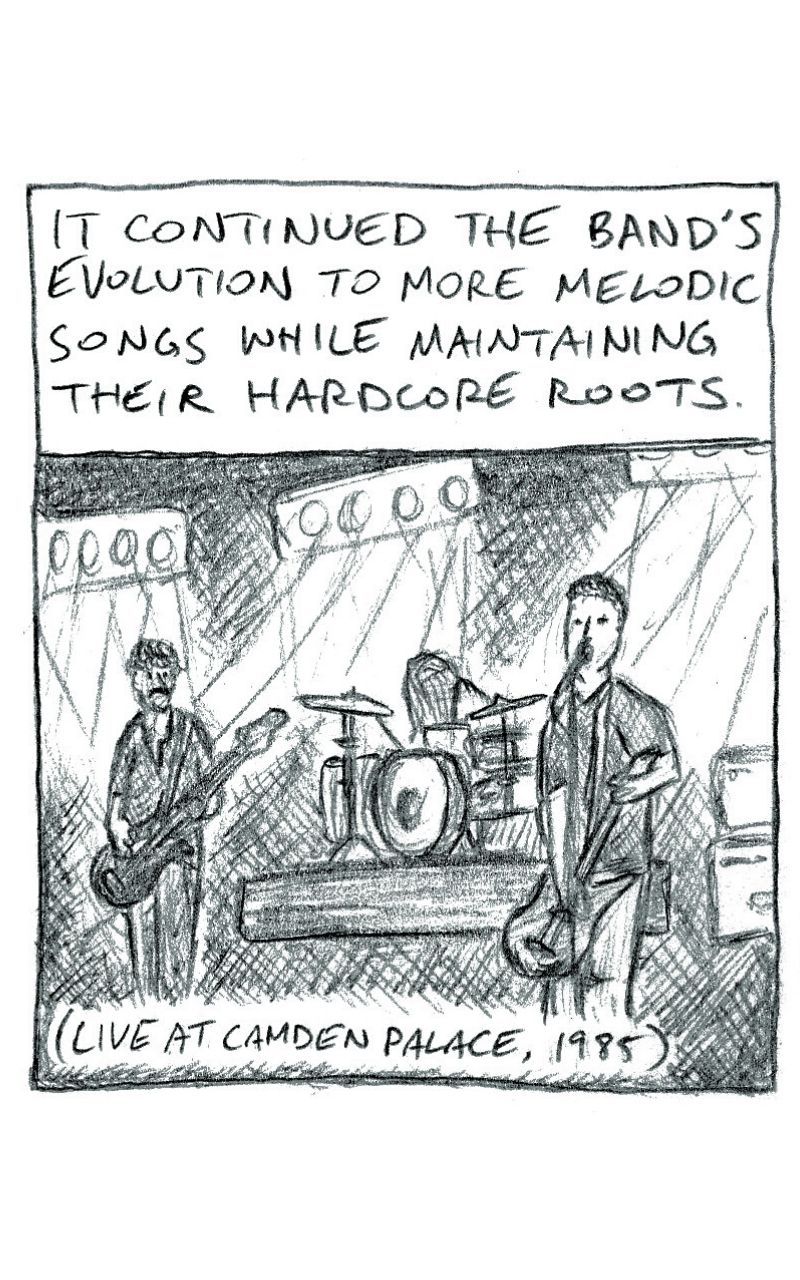 IT CONTINUED THE BAND'S
EVOLUTION TO MORE MELODIC
SONGS WHILE MAINTAINING
THEIR HARDCORE ROOTS.
(LIVE AT CAMDEN PALACE, 1985)